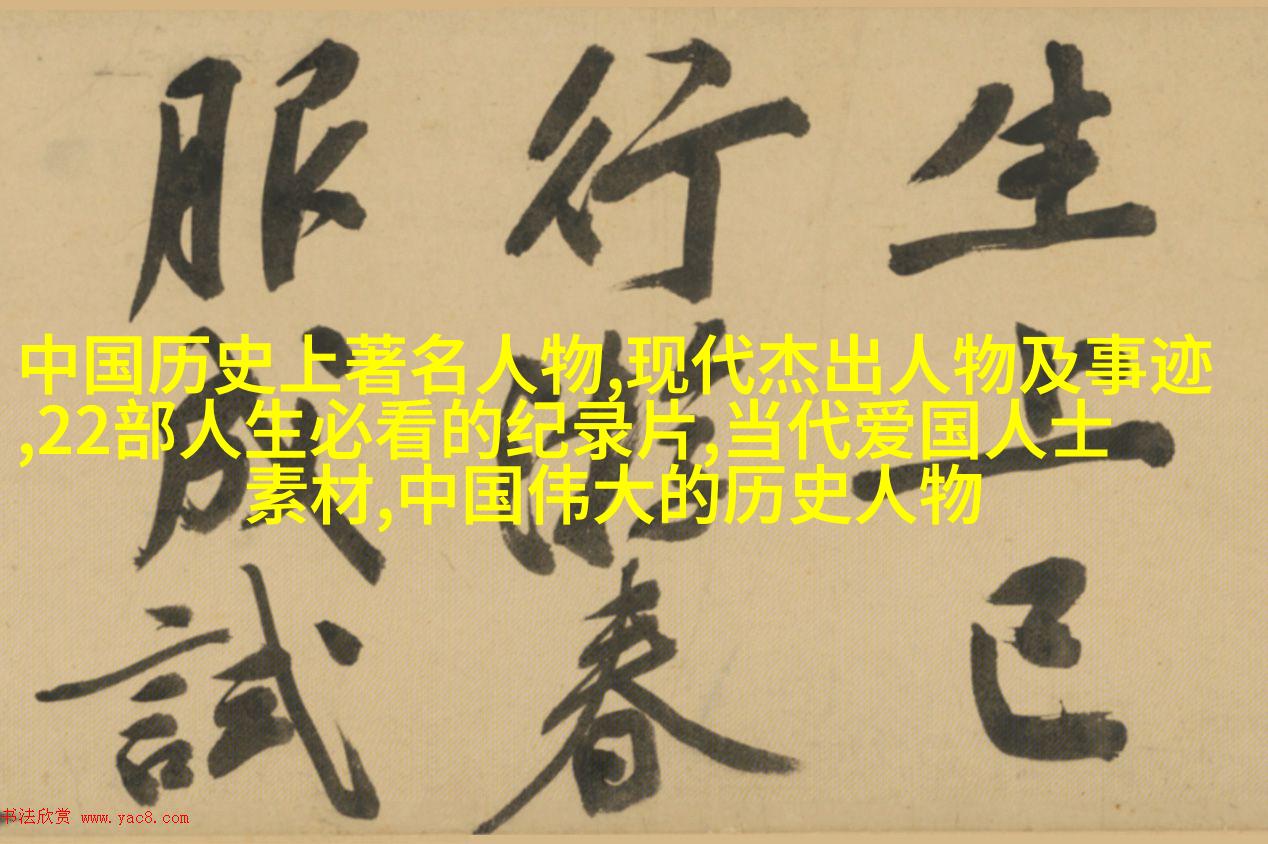 生上巳
行春
服成試
中国历史上著名人物,现代杰出人物及事迹
,22部人生必看的纪录片,当代爱国人士
素材,中国伟大的历史人物
书法欣赏 www.yac8.com